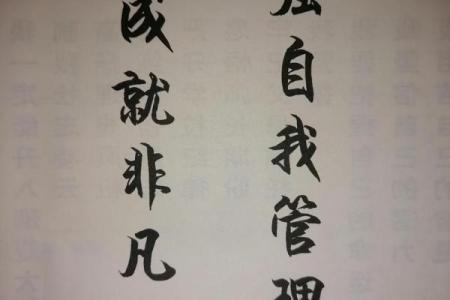 自我管理
成就非凡